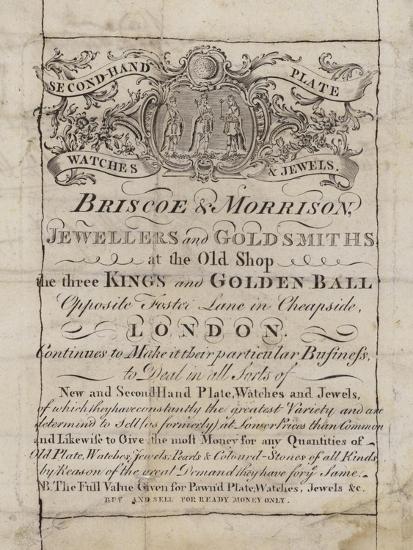 SECOND-HAND PLATE
WATCHES & JEWELS.
BRISCOE & MORRISON,
JEWELLERS and GOLDSMITHS
at the Old Shop
the three KINGS and GOLDEN BALL
Opposite Foster Lane in Cheapside,
LONDON.
Continues to Make it their particular Buſineſs,
to Deal in all Sorts of
New and Second Hand Plate, Watches and Jewels,
of which they have constantly the greatest Variety and are
determin'd to Sell (as formerly) at Lower Prices than Common
and Likewiſe to Give the moſt Money for any Quantities of
Old Plate, Watches, Jewels, Pearls & Colour'd-Stones of all Kinds
by Reason of the great Demand they have for yᵉ Same.
NB. The Full Value Given for Pawn'd Plate, Watches, Jewels &c.
BUY AND SELL FOR READY MONEY ONLY.